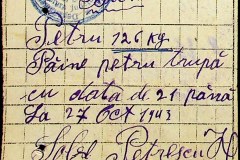 Petru 126 kg
Pâine petru trupă
cu data de 21 până
La 27 Oct 1943
Petrescu N